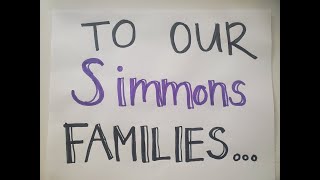 TO OUR
Simmons
FAMILIES...